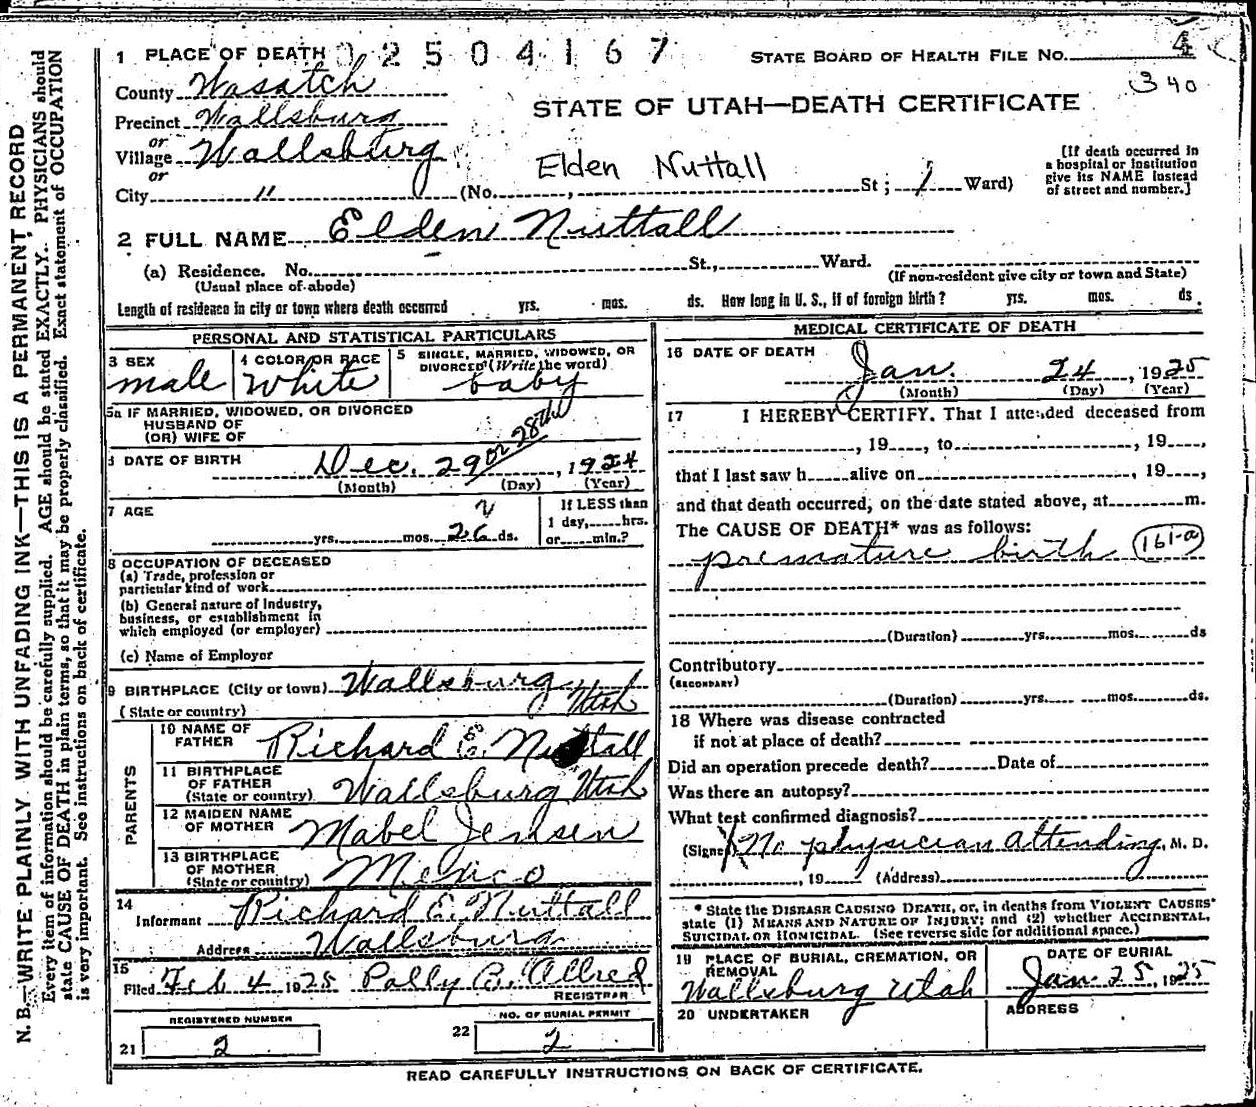 1 PLACE OF DEATH 02504167 STATE BOARD OF HEALTH FILE No. 4
County Wasatch 340
STATE OF UTAH—DEATH CERTIFICATE
Precinct Wallsburg
or
Village Wallsburg
or
City " (No. , Elden Nuttall St ; 1 Ward)
[If death occurred in
a hospital or institution
give its NAME instead
of street and number.]
2 FULL NAME Elden Nuttall
(a) Residence. No. St., Ward.
(Usual place of abode) (If non-resident give city or town and State)
Length of residence in city or town where death occurred yrs. mos. ds. How long in U. S., if of foreign birth? yrs. mos. ds.
PERSONAL AND STATISTICAL PARTICULARS
3 SEX
male
4 COLOR OR RACE
White
5 SINGLE, MARRIED, WIDOWED, OR
DIVORCED (Write the word)
baby
5a IF MARRIED, WIDOWED, OR DIVORCED
HUSBAND OF
(OR) WIFE OF
6 DATE OF BIRTH Dec. 29 or 28th, 1924
(Month) (Day) (Year)
7 AGE
yrs. mos. 26 ds.
If LESS than
1 day, hrs.
or min.?
8 OCCUPATION OF DECEASED
(a) Trade, profession or
particular kind of work
(b) General nature of Industry,
business, or establishment in
which employed (or employer)
(c) Name of Employer
9 BIRTHPLACE (City or town) Wallsburg
(State or country) Utah
PARENTS
10 NAME OF
FATHER Richard E. Nuttall
11 BIRTHPLACE
OF FATHER
(State or country) Wallsburg Utah
12 MAIDEN NAME
OF MOTHER Mabel Jensen
13 BIRTHPLACE
OF MOTHER
(State or country) Mexico
14
Informant Richard E. Nuttall
Address Wallsburg
15
Filed Feb 4 1925 Polly B. Allred
REGISTRAR
REGISTERED NUMBER
21 2
NO. OF BURIAL PERMIT
22 2
MEDICAL CERTIFICATE OF DEATH
16 DATE OF DEATH
Jan. 24, 1925
(Month) (Day) (Year)
17 I HEREBY CERTIFY. That I attended deceased from
, 19 , to , 19 ,
that I last saw h alive on , 19 ,
and that death occurred, on the date stated above, at m.
The CAUSE OF DEATH* was as follows:
premature birth 161-a
(Duration) yrs. mos. ds
Contributory
(SECONDARY)
(Duration) yrs. mos. ds.
18 Where was disease contracted
if not at place of death?
Did an operation precede death? Date of
Was there an autopsy?
What test confirmed diagnosis?
(Signed) No physician attending, M. D.
, 19 (Address)
* State the DISEASE CAUSING DEATH, or, in deaths from VIOLENT CAUSES*
state (1) MEANS AND NATURE OF INJURY; and (2) whether ACCIDENTAL,
SUICIDAL OR HOMICIDAL. (See reverse side for additional space.)
19 PLACE OF BURIAL, CREMATION, OR
REMOVAL
Wallsburg Utah
DATE OF BURIAL
Jan 25, 1925
20 UNDERTAKER
ADDRESS
READ CAREFULLY INSTRUCTIONS ON BACK OF CERTIFICATE.
N. B.—WRITE PLAINLY WITH UNFADING INK—THIS IS A PERMANENT RECORD
Every item of information should be carefully supplied. AGE should be stated EXACTLY. PHYSICIANS should
state CAUSE OF DEATH in plain terms, so that it may be properly classified. Exact statement of OCCUPATION
is very important. See instructions on back of certificate.